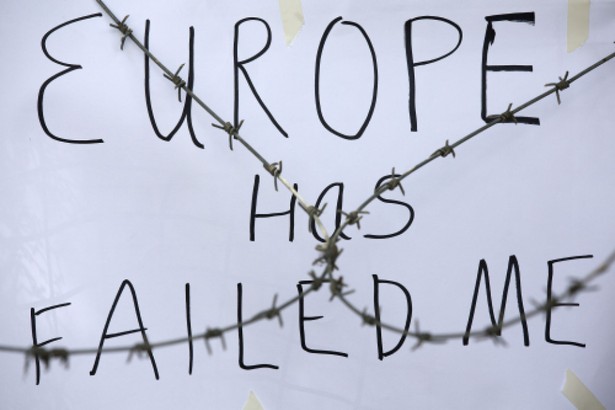 EUROPE
Has
FAILED ME